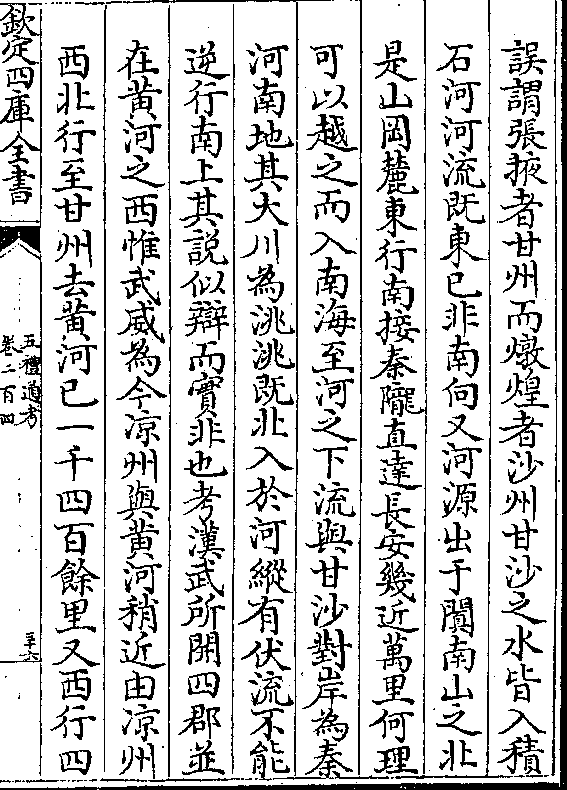 誤謂張掖者甘州而燉煌者沙州甘沙之水皆入積
石河河流既東已非南向又河源出于闐南山之北
是山岡麓東行南接秦隴直達長安幾近萬里何理
可以越之而入南海至河之下流與甘沙對岸為秦
河南地其大川為洮洮既北入於河縱有伏流不能
逆行南上其說似辯而實非也考漢武所開四郡並
在黄河之西惟武威為今凉州與黄河稍近由凉州
西北行至甘州去黄河已一千四百餘里又西行四
欽定四庫全書
五禮通考
卷二百四
三十六